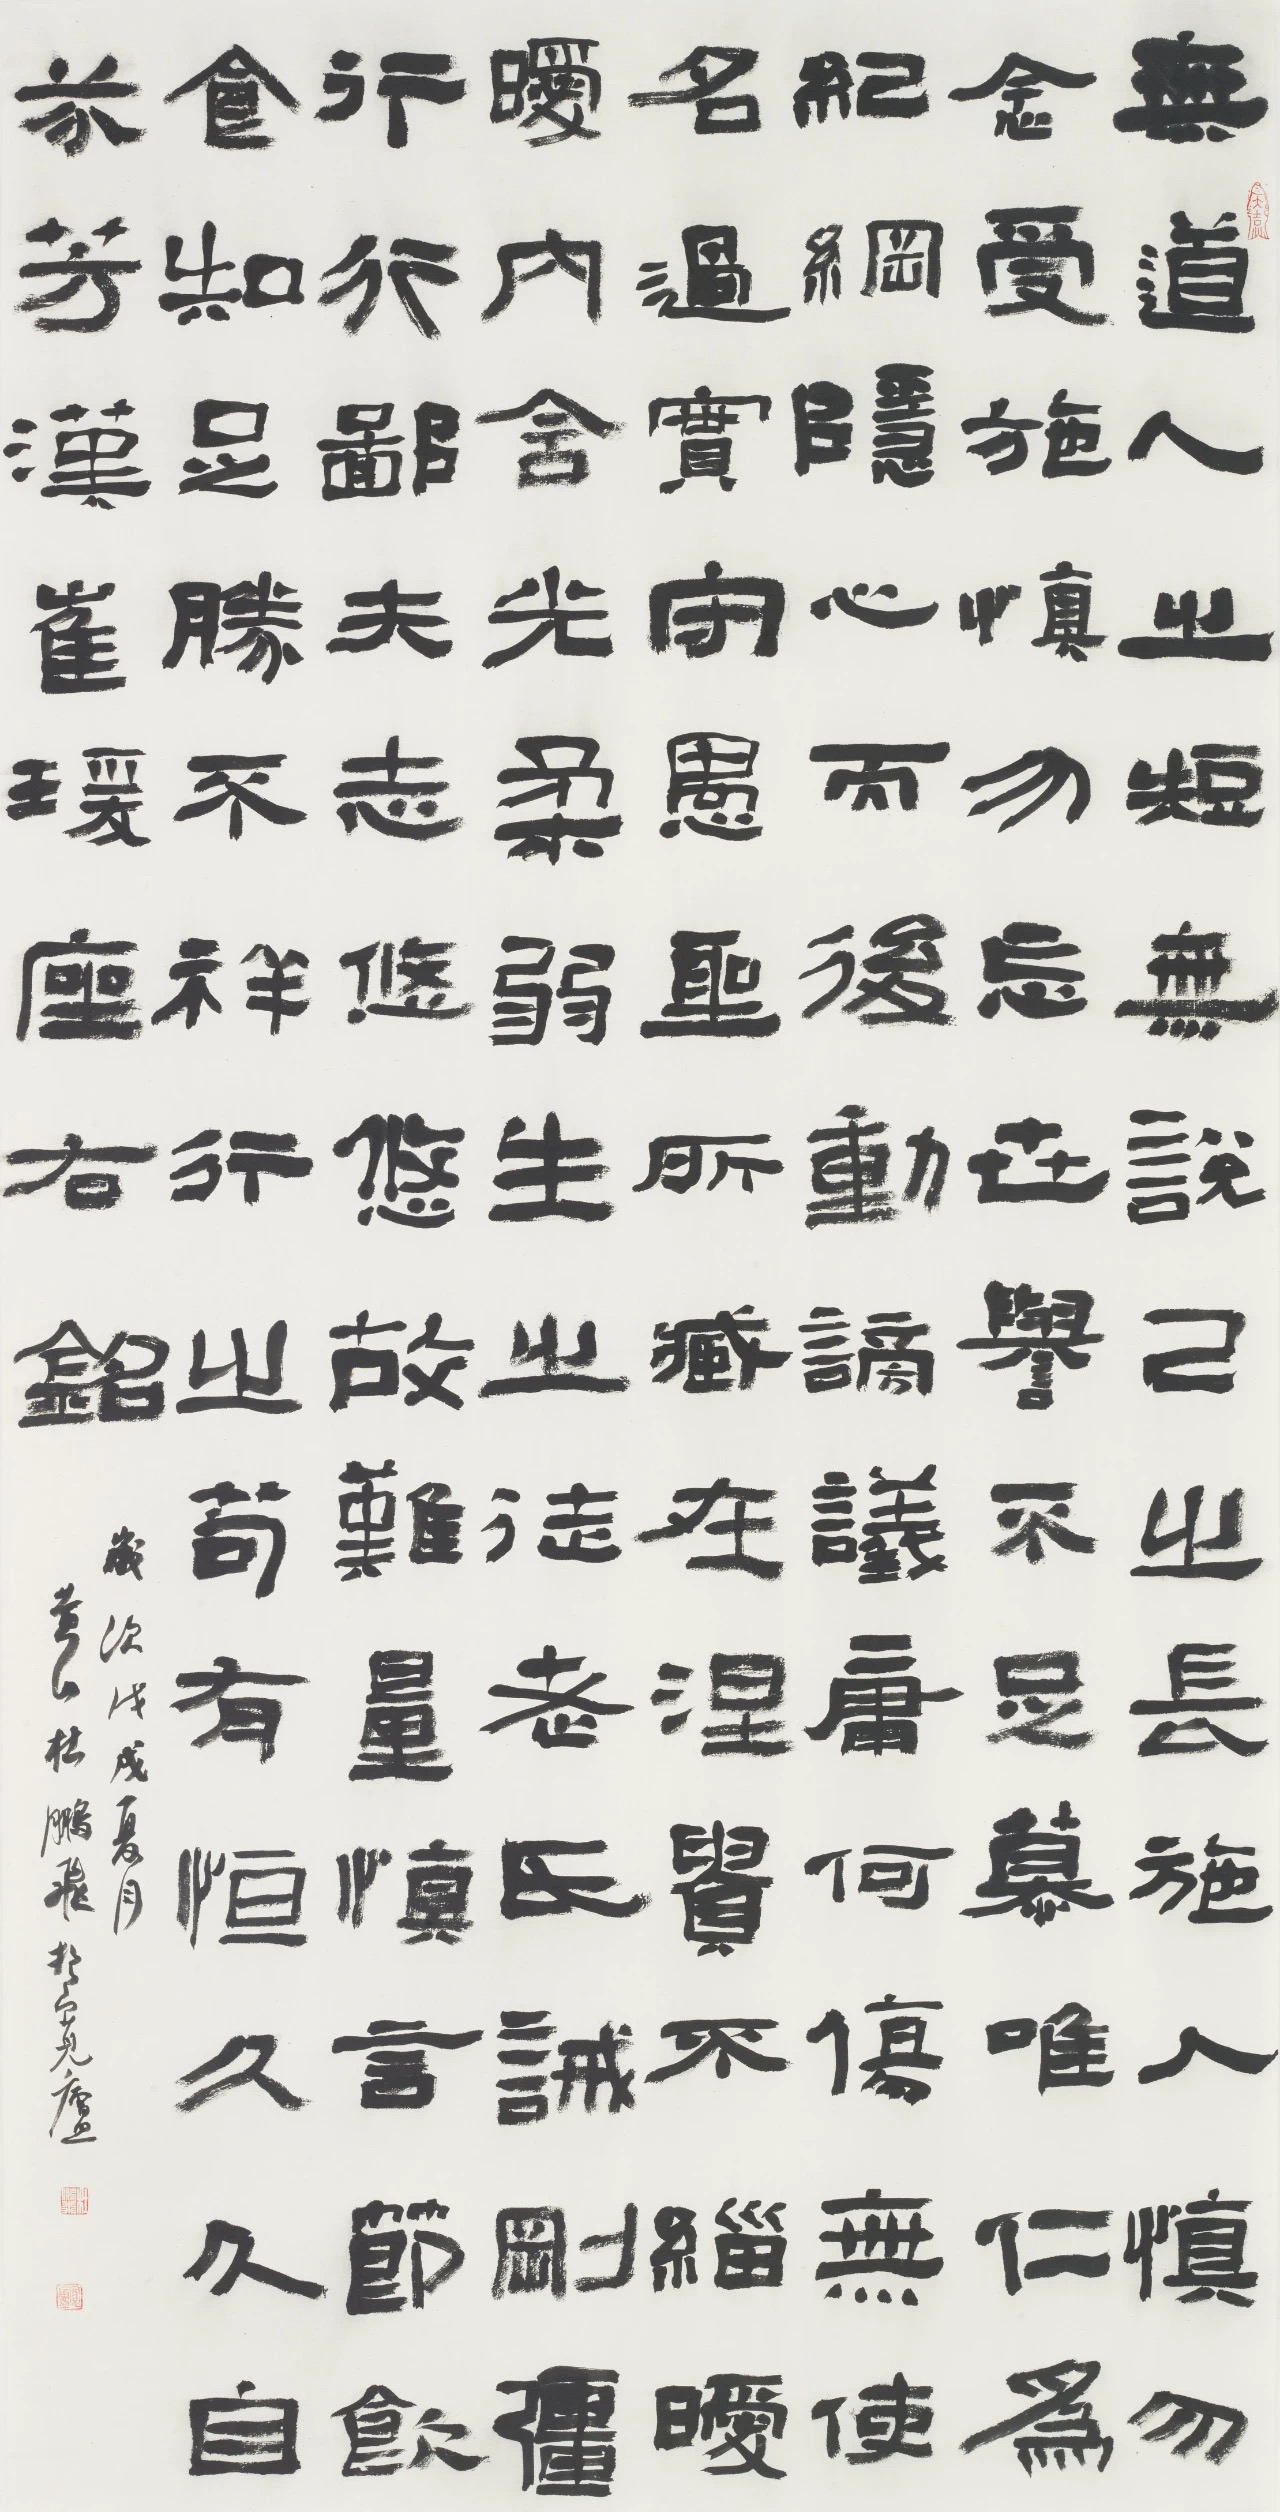 無道人之短無說己之長施人慎勿
念受施慎勿忘世譽不足慕唯仁爲
紀綱隱心而後動謗議庸何傷無使
名過實守愚聖所臧在涅貴不緇曖
曖內含光柔弱生之徒老氏誡剛彊
行行鄙夫志悠悠故難量慎言節飲
食知足勝不祥行之苟有恒久久自
芬芳漢崔瑗座右銘
歲次戊戌夏月
黃山杜鵬飛於見廬